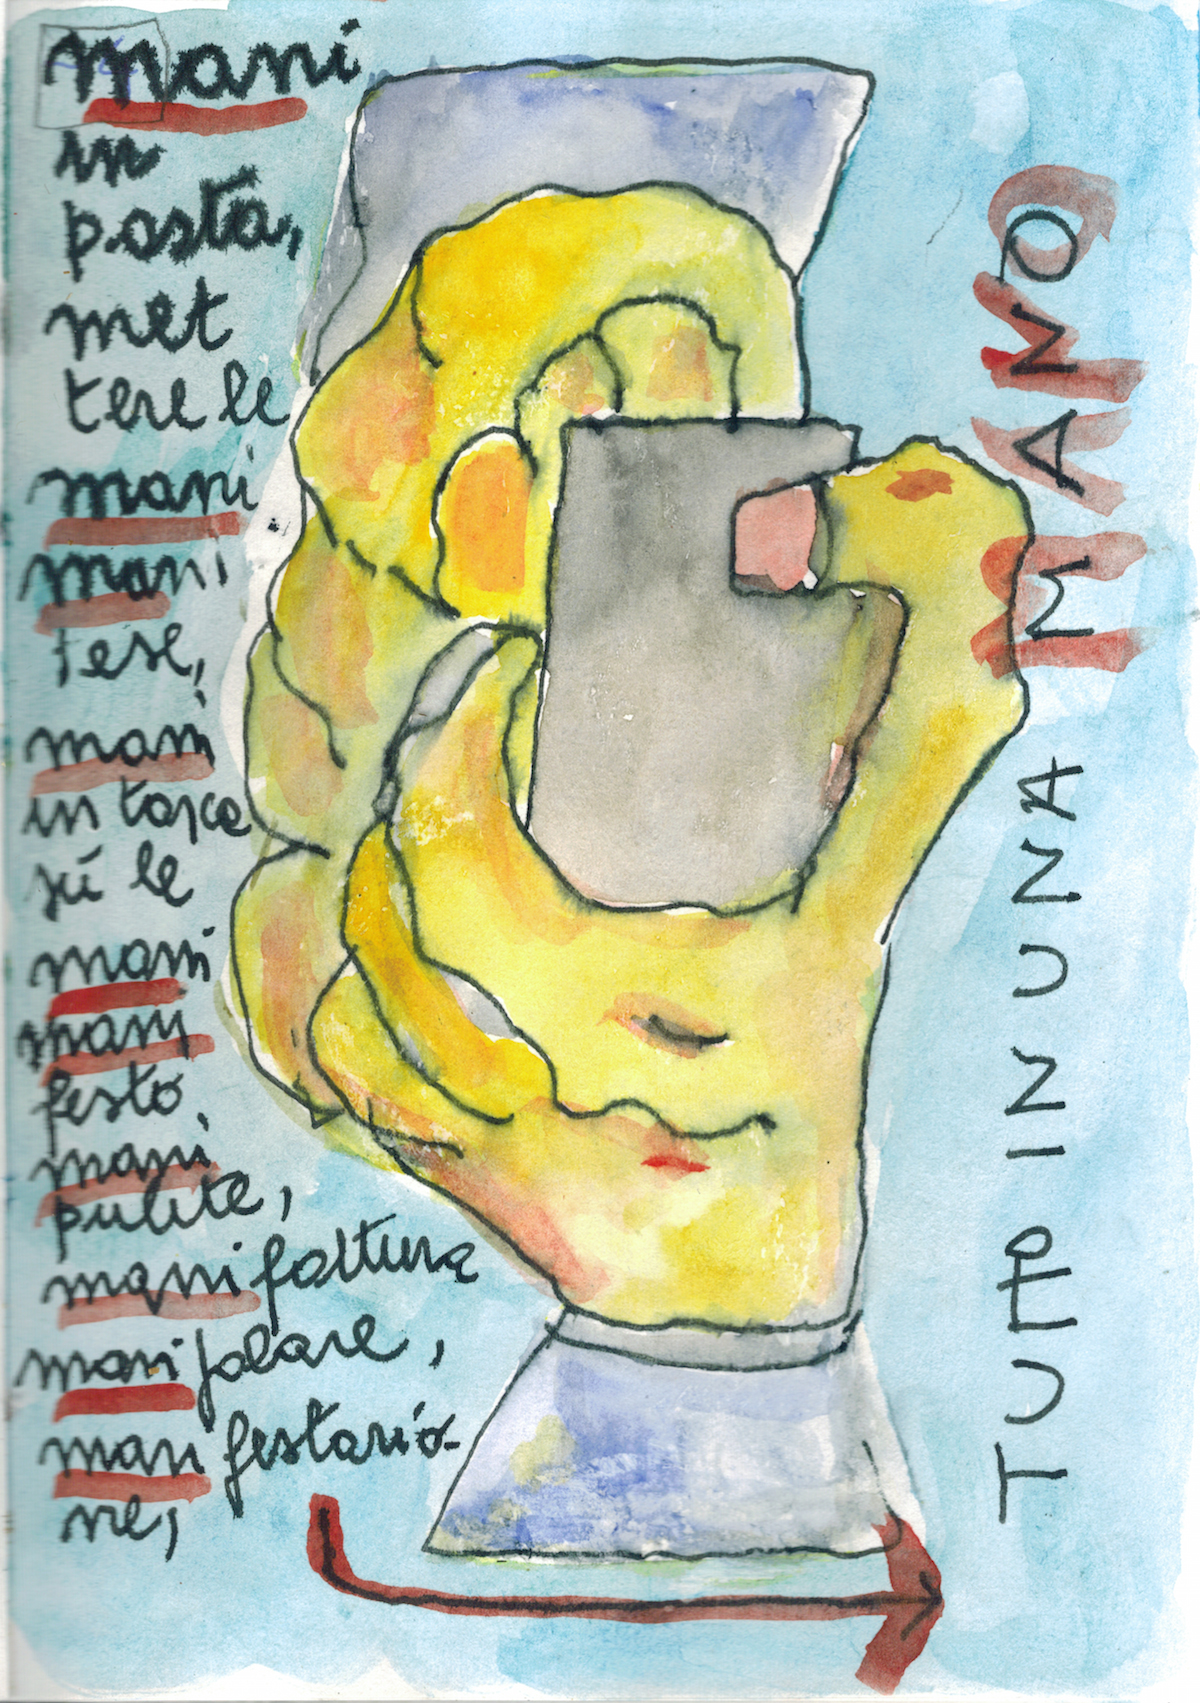 mani
in
pasta,
met
tere le
mani
mani
tese,
mani
in tasca
sú le
mani
mani
festo
mani
pulite,
manifattura
manipolare,
manifestazio-
ne,
TUTTE IN UNA MANO